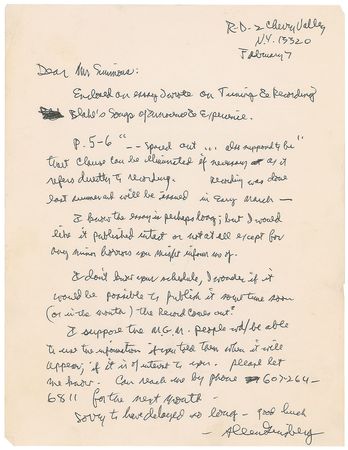 R.D. 2 Cherry Valley
N.Y. 13320
February 7
Dear Mr Simmons:
Enclosed an essay I wrote on Tuning & Recording
Blake's Songs of Innocence & Experience.
P. 5-6 "-- spaced out ... as supposed to be"
that clause can be eliminated if necessary as it
refers directly to recording. Recording was done
last summer and will be issued in early March —
I know the essay is perhaps long; but I would
like it published intact or not at all except for
any minor horrors you might inform me of.
I don't know your schedule, I wonder if it
would be possible to publish it sometime soon
(or in the month) the Record comes out?
I suppose the M.G.M. people wd/be able
to use the information if you told them when it will
appear, if it is of interest to you. Please let
me know. Can reach me by phone 607-264-
6811 for the next month -
Sorry to have delayed so long - good luck
- Allen Ginsberg